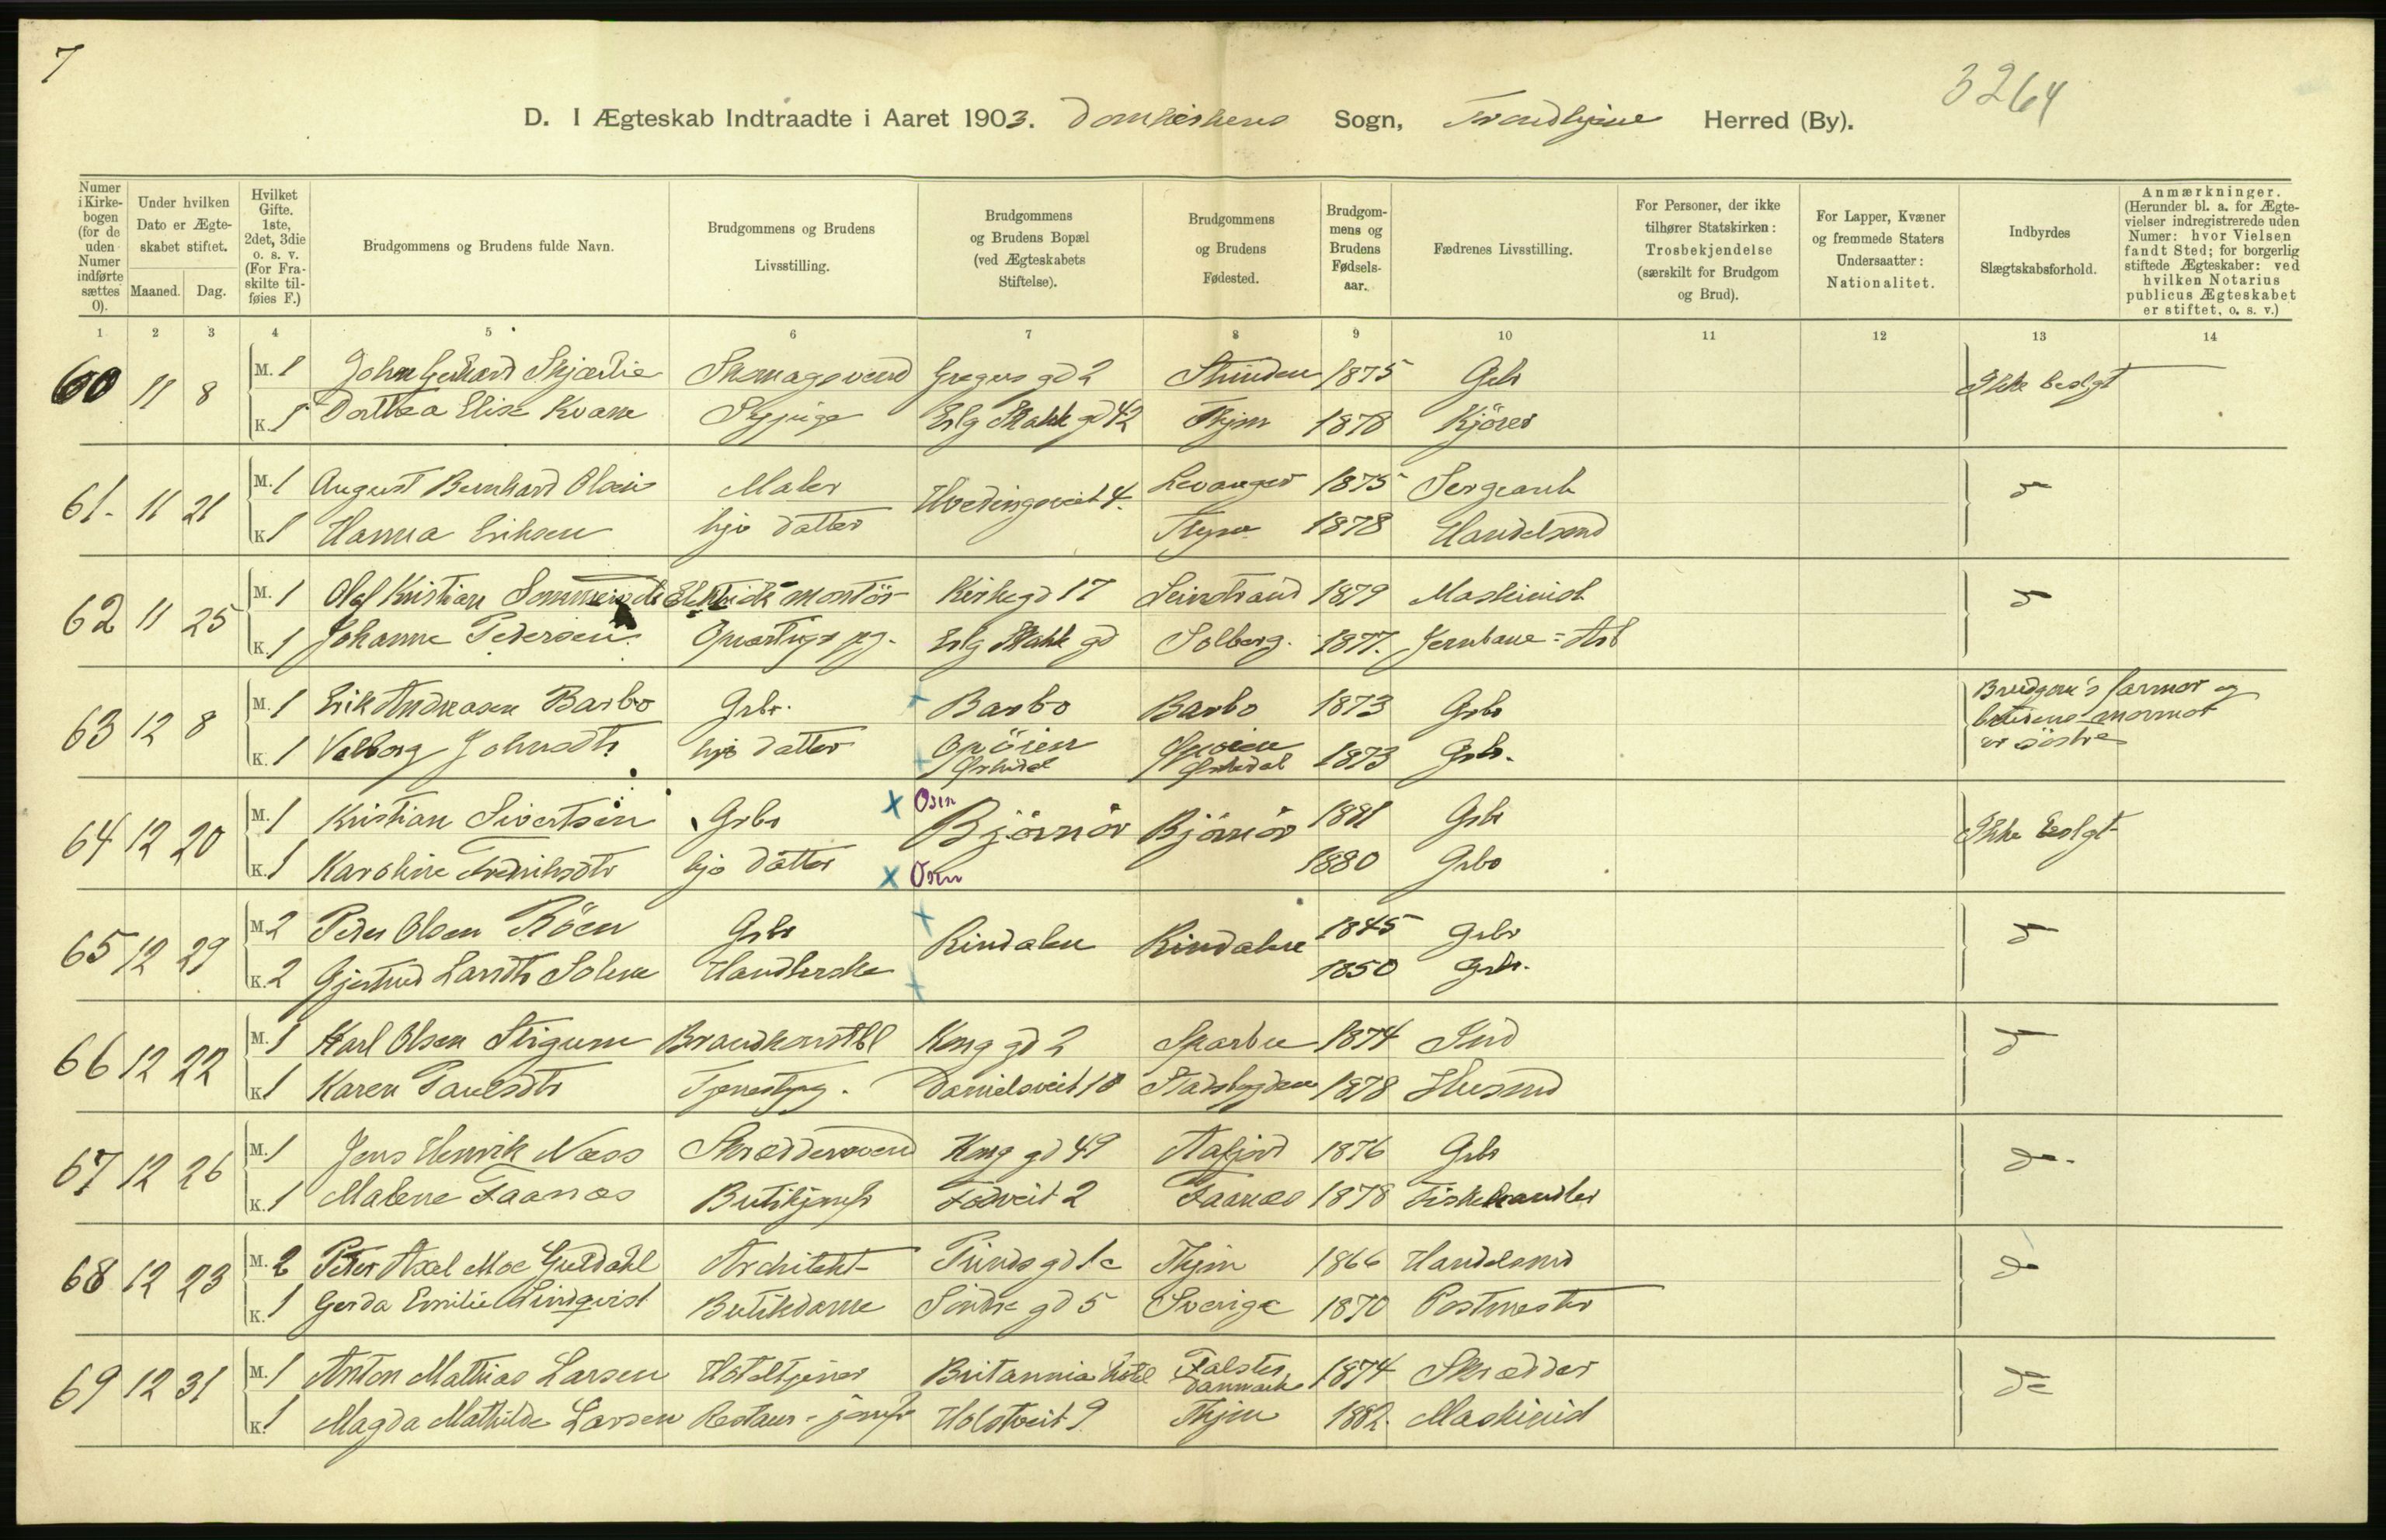 7
3264
D. I Ægteskab Indtraadte i Aaret 1903. Domkirkens Sogn, Trondhjem Herred (By).
Numer i Kirke-bogen (for de uden Numer indførte sættes 0). Under hvilken Dato er Ægte-skabet stiftet. Maaned. Dag. Hvilket Gifte. 1ste, 2det, 3die o. s. v. (For Fra-skilte til-føies F.) Brudgommens og Brudens fulde Navn. Brudgommens og Brudens Livsstilling. Brudgommens og Brudens Bopæl (ved Ægteskabets Stiftelse). Brudgommens og Brudens Fødested. Brudgom-mens og Brudens Fødsels-aar. Fædrenes Livsstilling. For Personer, der ikke tilhører Statskirken: Trosbekjendelse (særskilt for Brudgom og Brud). For Lapper, Kvæner og fremmede Staters Undersaatter: Nationalitet. Indbyrdes Slægtskabsforhold. Anmærkninger. (Herunder bl. a. for Ægte-vielser indregistrerede uden Numer: hvor Vielsen fandt Sted; for borgerlig stiftede Ægteskaber: ved hvilken Notarius publicus Ægteskabet er stiftet, o. s. v.)
1 2 3 4 5 6 7 8 9 10 11 12 13 14
60 11 8 M. 1 John Gerhard Skjærlie Skomagersvend gd 2 Strinden 1875 Gbr Ikke beslgt
K. 1 Dorthea Elise Kvam Sypige Erlg Skakk gd 42 Thjm 1878 Kjörer
61 11 21 M. 1 August Bernhard Olsen Maler Hvedingsveit 4. Levanger 1875 Sergeant d
K. 1 Hanna Eriksen hjv datter Thjm 1878 Handelsmd
62 11 25 M. 1 Olaf Kristian Elektrisk montör Kirkegd 17 Leinstrand 1879 Maskinist d
K. 1 Johanne Pedersen Opvartngs pg. Erlg Skakk gd Solberg. 1877. Jernbane=Arb
63 12 8 M. 1 Erik Andreasen Barbo Gbr. Barbo Barbo 1873 Gbr Brudgom's farmor og
K. 1 Valborg Johnsdtr hjv datter Opöien Örkedal Opöien Örkedal 1873 Gbr. brudens mormor er söstre
64 12 20 M. 1 Kristian Sivertsen Gbr x Osen Björnör Björnör 1881 Gbr Ikke beslgt
K. 1 Karoline Fredriksdtr hjv datter x Osen 1880 Gbr
65 12 29 M. 2 Peder Olsen Röen Gbr Rindalen Rindalen 1845 Gbr d
K. 2 Gjertrud Larsdtr Solem Handlerske 1850 Gbr.
66 12 22 M. 1 Karl Olsen Stigum Brandkonstbl Kong gd 2 Sparbu 1874 Smd d
K. 1 Karen Paulsdtr Tjenestpg. Danielsveit 10 Stadsbygden 1878 Husmd
67 12 26 M. 1 Jens Henrik Næss Skræddersvend Kong gd 49 Aafjord 1876 Gbr do.
K. 1 Malene Faanæs Butikjomfr Fedveit 2 Faanæs 1878 Fiskehandler
68 12 23 M. 2 Peter Axel Moe Guldahl Architekt gd 1c Thjm 1866 Handelsmd do
K. 1 Gerda Emilie Lindqvist Butikdame Söndre gd 5 Sverige 1870 Postmester
69 12 31 M. 1 Anton Mathias Larsen Hoteltjener Britannia Hotel Falster Danmark 1874 Skrædder do
K. 1 Magda Mathilde Larsen Restaur-jomfr Holstveit 9 Thjm 1882. Maskinist